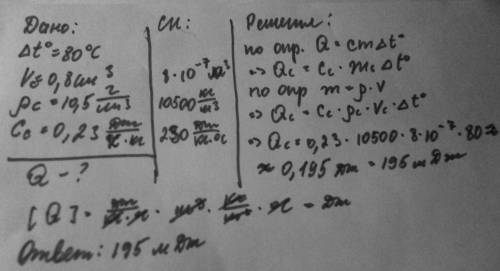 Дано:
Δt°=80°C
V=0,8см³
ρc=10,5 г/см³
Cc=0,23 Дж/г·к
Q - ?
СИ:
8·10⁻⁷м³
10500 кг/м³
230 Дж/кг·°C
Решение:
по опр. Q=cmΔt°
⇒ Qc = Cc·mcΔt°
по опр m=ρ·V
⇒ Qc = Cc·ρc·Vc·Δt°
⇒ Qc=0,23·10500·8·10⁻⁷·80≈
≈ 0,195 Дж = 195 мДж
[Q] = Дж/кг·к · м³ · кг/м³ · к = Дж
Ответ: 195 мДж